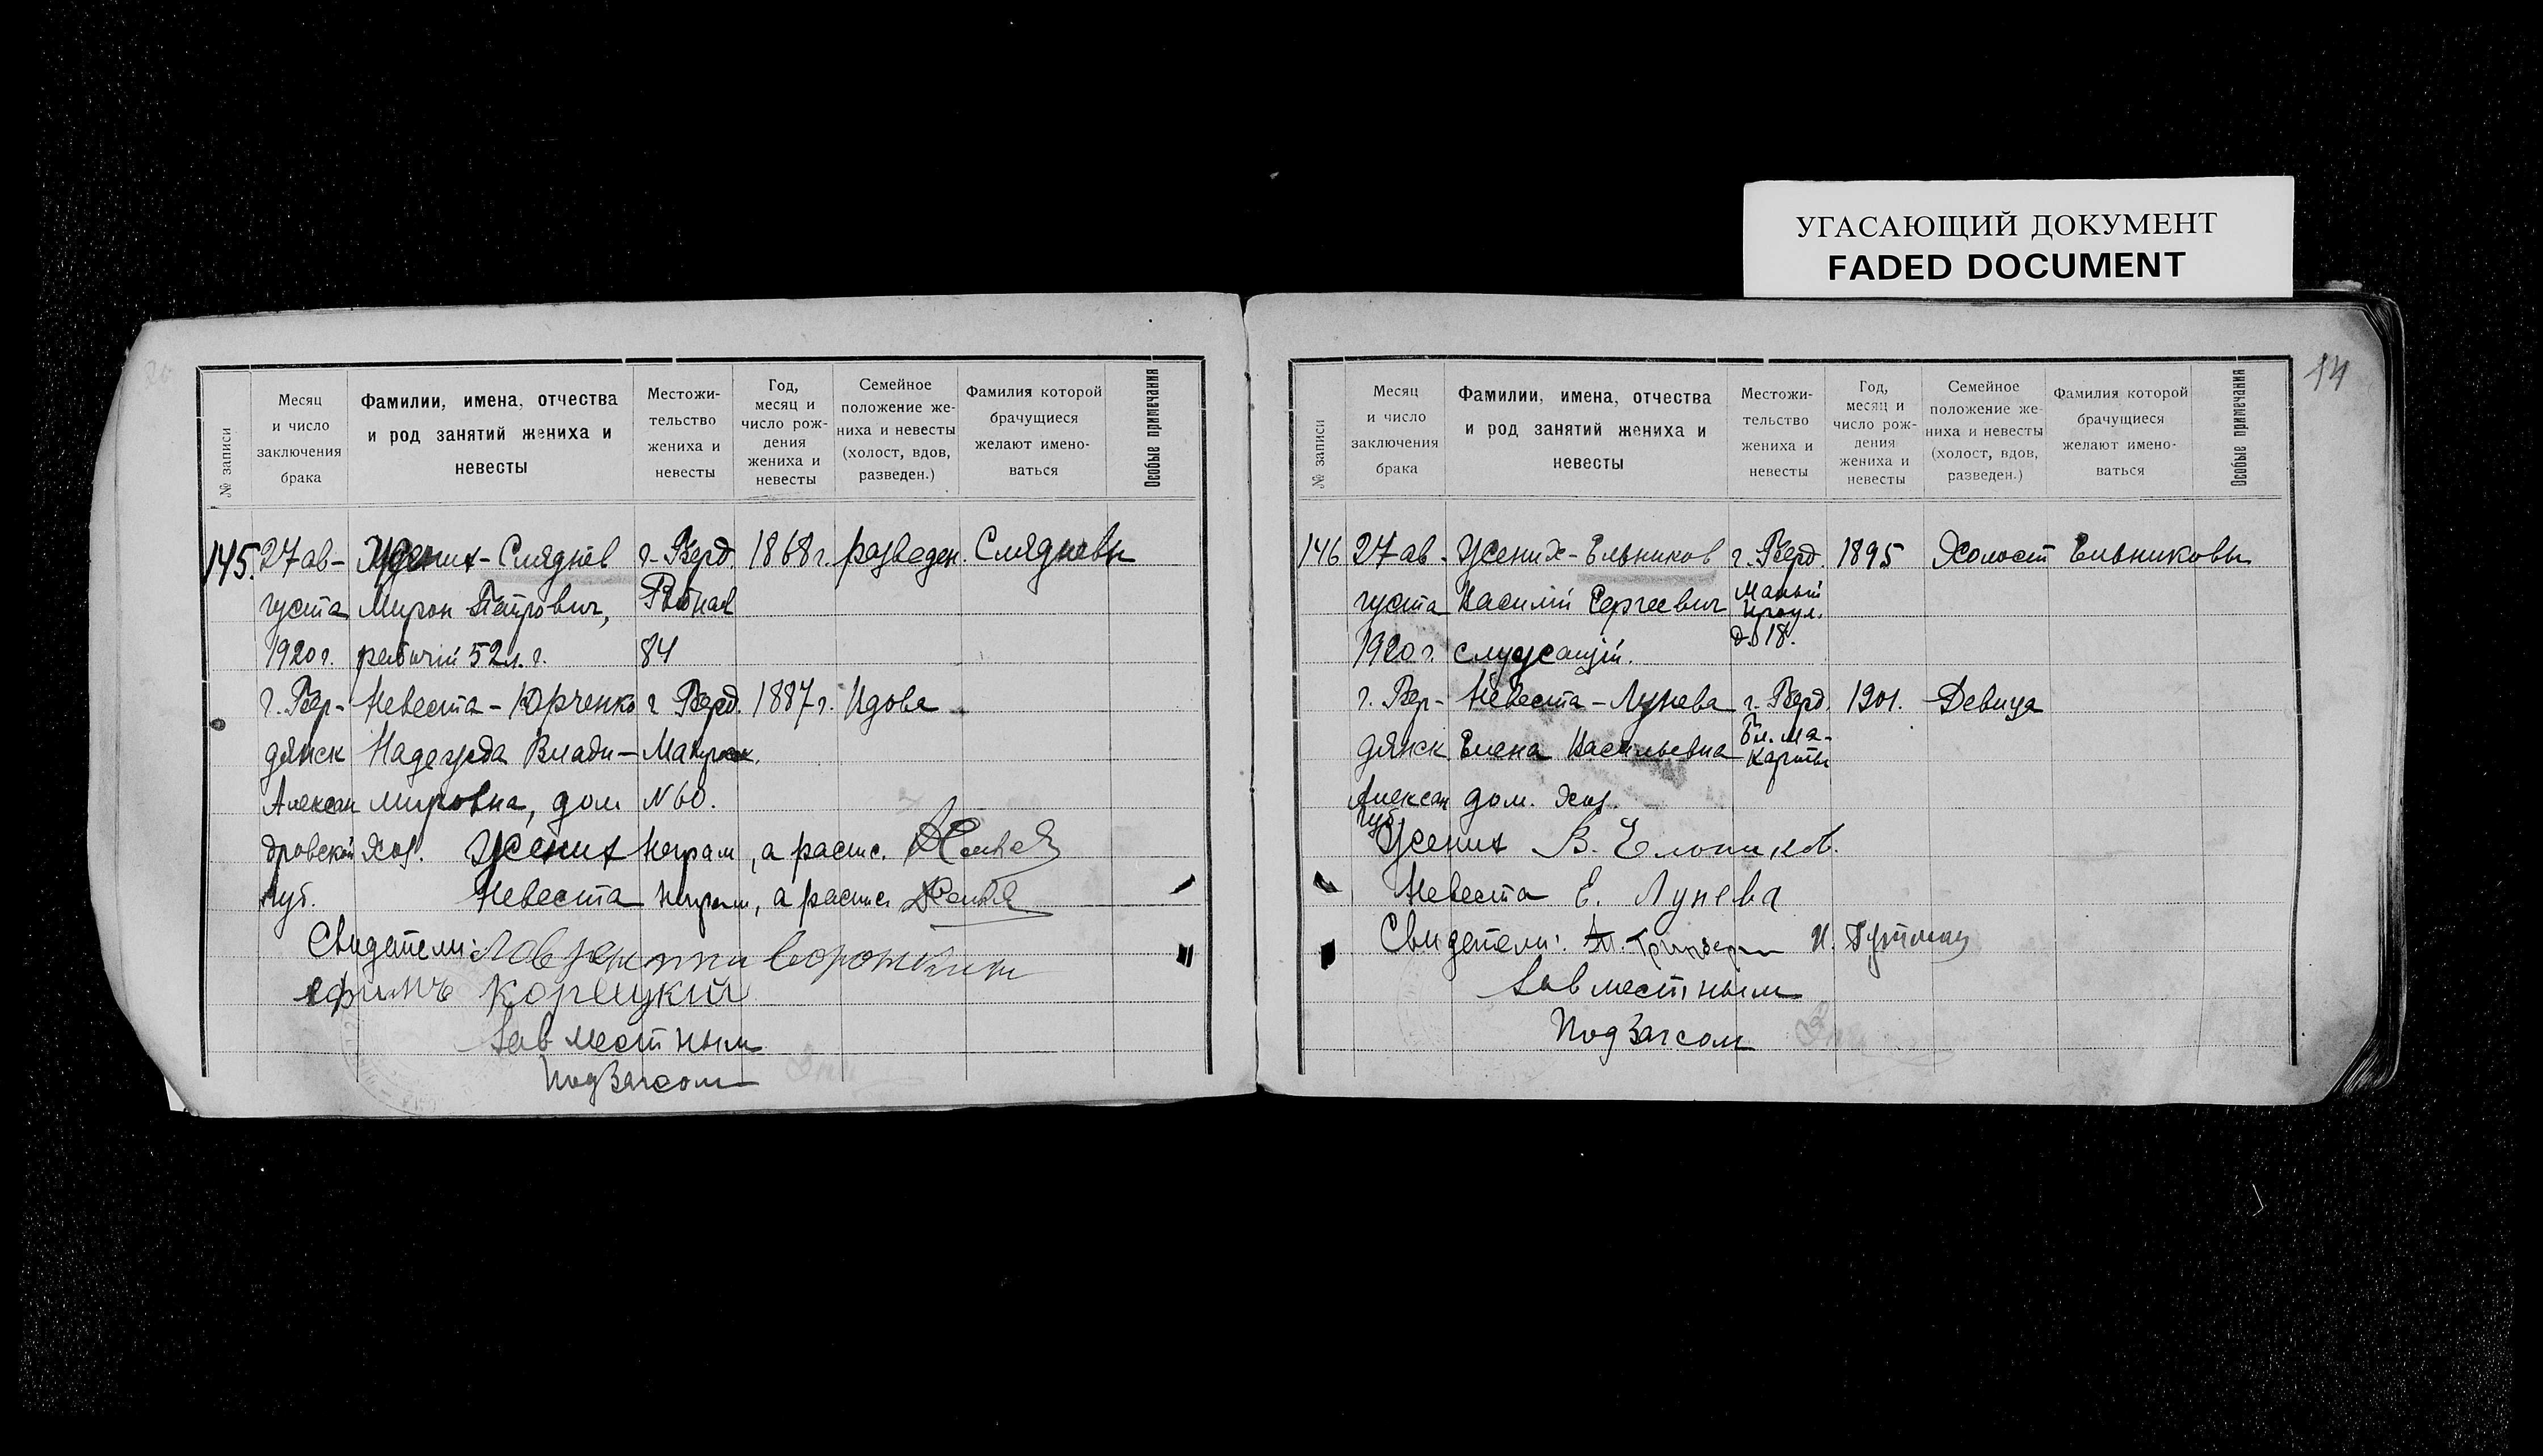 УГАСАЮЩИЙ ДОКУМЕНТ
FADED DOCUMENT
14
№ записи
Месяц и число заключения брака
Фамилии, имена, отчества и род занятий жениха и невесты
Местожительство жениха и невесты
Год, месяц и число рождения жениха и невесты
Семейное положение жениха и невесты (холост, вдов, разведен.)
Фамилия которой брачущиеся желают именоваться
Особые примечания
145. 27 ав- Жених - Сляднев г. Берд. 1868 г. разведен. Слядневы
густа Мирон Петрович, Рыбная
1920 г. рабочий 52 л. г. 84
г. Бер- Невеста - Юрченко г. Берд. 1887 г. Вдова
дянск Надежда Влади-
Алексан мировна, дом N 60.
дровской хоз. Жених неграм, а распис.
губ. Невеста неграм, а распис.
Свидетели:
ефимъ Корецкий
Зав местным
Подзагсом
№ записи
Месяц и число заключения брака
Фамилии, имена, отчества и род занятий жениха и невесты
Местожительство жениха и невесты
Год, месяц и число рождения жениха и невесты
Семейное положение жениха и невесты (холост, вдов, разведен.)
Фамилия которой брачущиеся желают именоваться
Особые примечания
146 27 ав- Жених - Ельников г. Берд. 1895 Холост Ельниковы
густа Василий Сергеевич Малый
1920 г. служащий. д. 18.
г. Бер- Невеста - Лунева г. Берд. 1901. Девица
дянск Елена Васильевна
Алексан дом. хоз.
губ.
Жених В. Ельников.
Невеста Е. Лунева
Свидетели:
Зав местным
Подзагсом